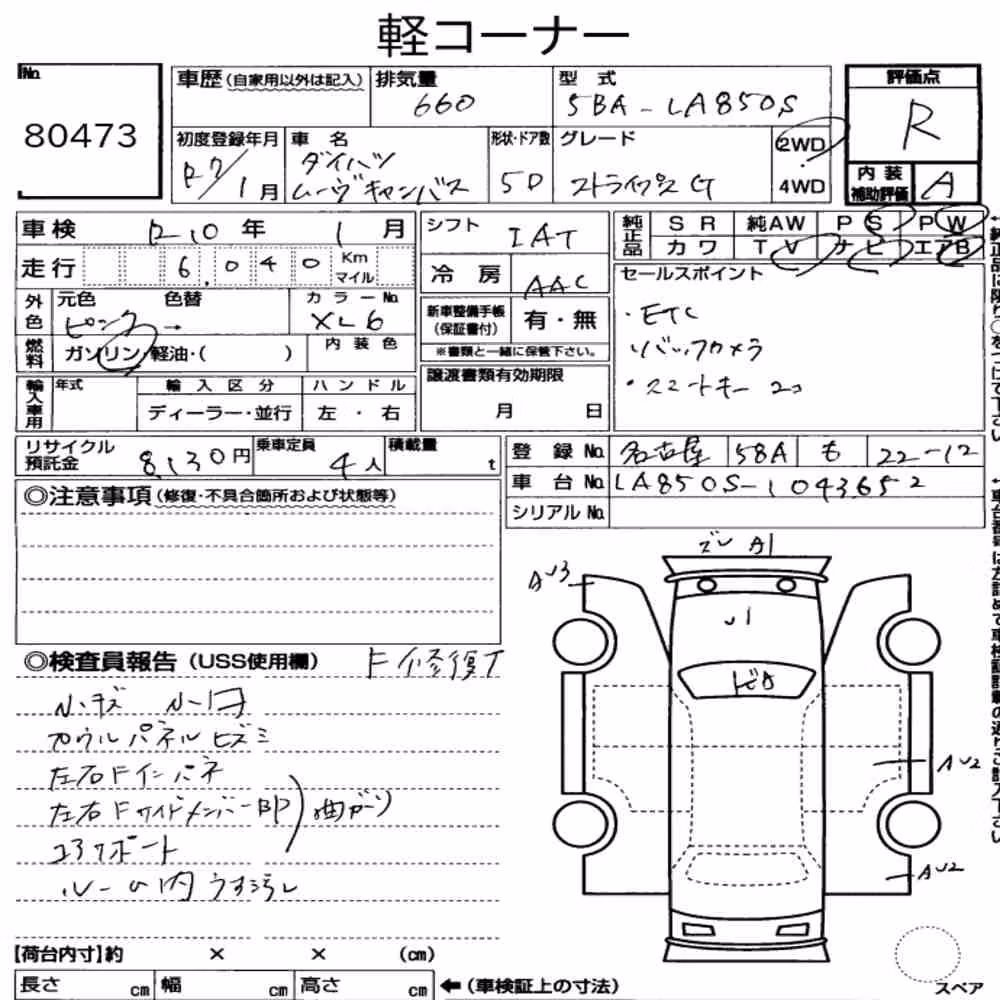 軽コーナー
No.
80473
車歴(自家用以外は記入)
排気量
660
型式
5BA-LA850S
評価点
R
初度登録年月
R7/1月
車名
ダイハツ
ムーヴキャンバス
形状・ドア数
5D
グレード
ストライプスG
2WD
4WD
内装
補助評価
A
車検
R10年 1月
シフト
IAT
純正品
SR 純AW PS PW
カワ TV ナビ エアB
走行
6,040
Km
マイル
冷房
AAC
セールスポイント
・ETC
・バックカメラ
・スマートキー 2コ
外色
元色
ピンク→
色替
カラーNo.
XL6
新車整備手帳
(保証書付)
有・無
※書類と一緒に保管下さい。
燃料
ガソリン/軽油・( )
内装色
輸入車用
年式
輸入区分
ディーラー・並行
ハンドル
左・右
譲渡書類有効期限
月 日
リサイクル
預託金
8,130円
乗車定員
4人
積載量
t
登録No.
名古屋 58A も 22-12
車台No.
LA850S-1043652
シリアルNo.
◎注意事項(修復・不具合箇所および状態等)
ズレ A1
AU3
U1
◎検査員報告(USS使用欄) F修復了
カウルパネルヒズミ
左右Fインパネ
左右Fサイドメンバー
曲がり
コアサポート
ルーム内うす汚レ
AU2
AU2
【荷台内寸】約 × × (cm)
長さ cm 幅 cm 高さ cm
←(車検証上の寸法)
スペア